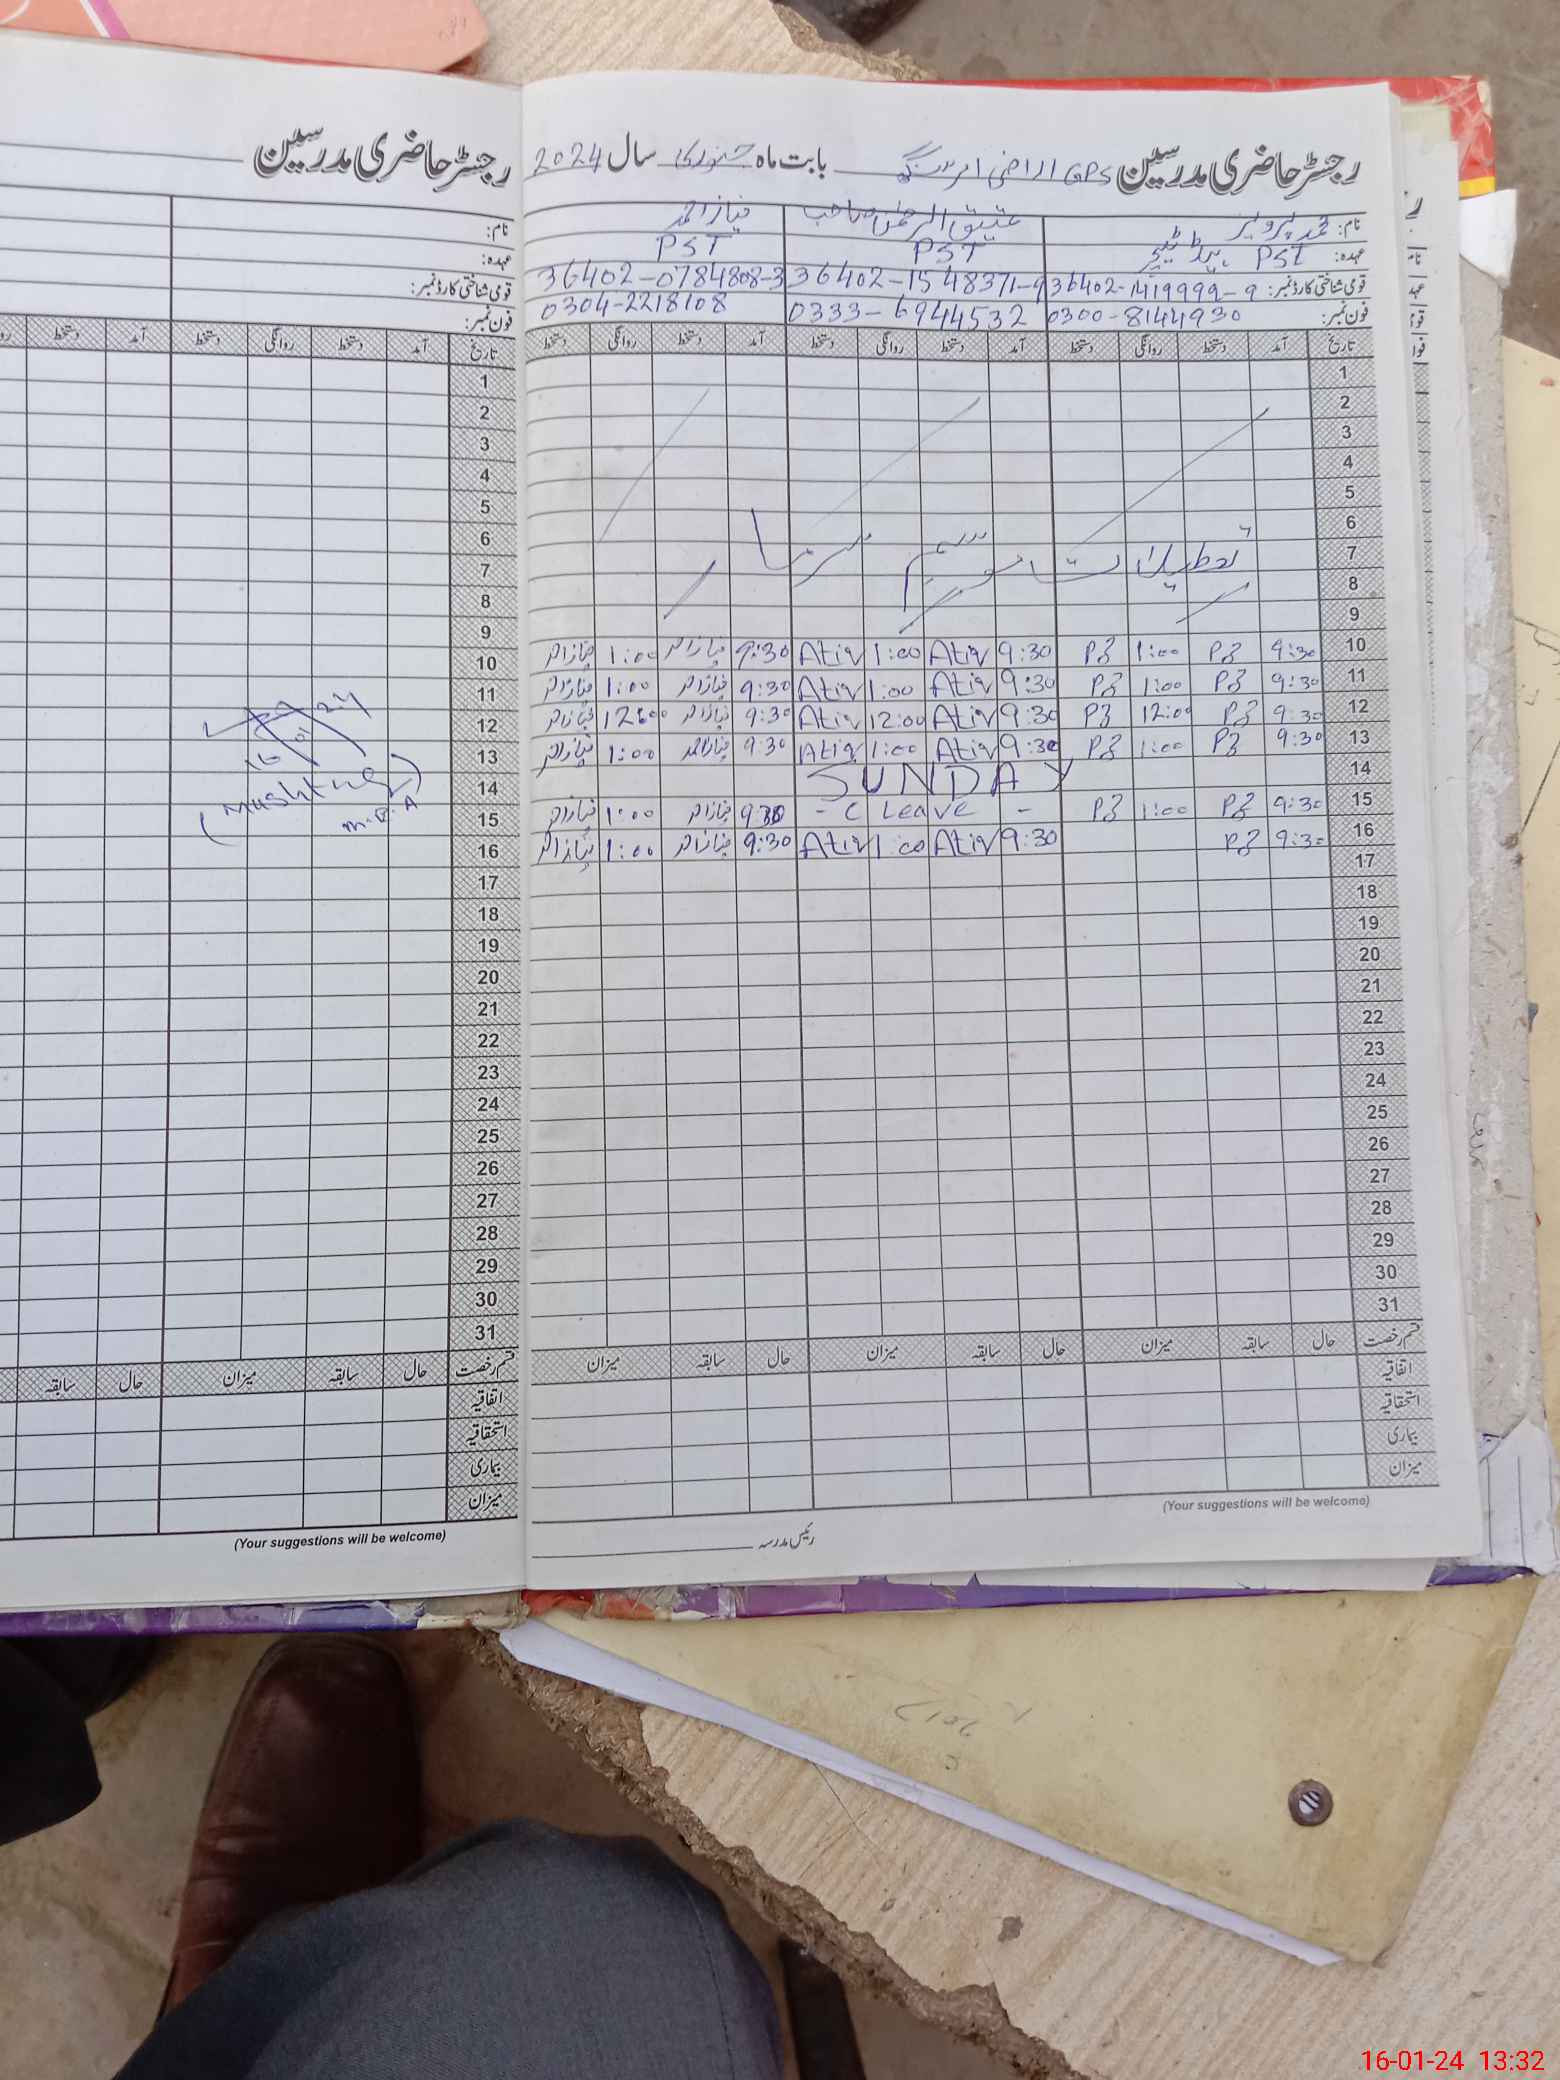 رجسٹر حاضری مدرسین GPS اراضی امر سنگھ بابت ماہ جنوری سال 2024
نام: محمد پرویز عتیق الرحمٰن صاحب نیاز احمد
عہدہ: PST ہیڈ ٹیچر PST PST
قومی شناختی کارڈ نمبر: 36402-1419999-9 36402-1548371-9 36402-0784808-3
فون نمبر: 0300-8144930 0333-6944532 0304-2218108
تاریخ آمد دستخط روانگی دستخط آمد دستخط روانگی دستخط آمد دستخط روانگی دستخط
1
2
3
4
5
6
7 تعطیلات موسم سرما
8
9
10 9:30 1:00 9:30 Atiq 1:00 Atiq 9:30 نیاز احمد 1:00 نیاز احمد
11 9:30 1:00 9:30 Atiq 1:00 Atiq 9:30 نیاز احمد 1:00 نیاز احمد
12 9:30 12:00 9:30 Atiq 12:00 Atiq 9:30 نیاز احمد 12:00 نیاز احمد
13 9:30 1:00 9:30 Atiq 1:00 Atiq 9:30 نیاز احمد 1:00 نیاز احمد
14 SUNDAY
15 9:30 1:00 - C Leave - 9:30 نیاز احمد 1:00 نیاز احمد
16 9:30 9:30 Atiq 1:00 Atiq 9:30 نیاز احمد 1:00 نیاز احمد
17
18
19
20
21
22
23
24
25
26
27
28
29
30
31
قسم رخصت حال سابقہ میزان حال سابقہ میزان حال سابقہ میزان
اتفاقیہ
استحقاقیہ
بیماری
میزان
(Your suggestions will be welcome)
رئیس مدرسہ
رجسٹر حاضری مدرسین
نام:
عہدہ:
قومی شناختی کارڈ نمبر:
فون نمبر:
تاریخ آمد دستخط روانگی دستخط آمد دستخط
1
2
3
4
5
6
7
8
9
10
11
12
13
14
15
16
17
18
19
20
21
22
23
24
25
26
27
28
29
30
31
16 01 24
(Mushtaq)
M.E.A
قسم رخصت حال سابقہ میزان حال سابقہ
اتفاقیہ
استحقاقیہ
بیماری
میزان
(Your suggestions will be welcome)
16-01-24 13:32